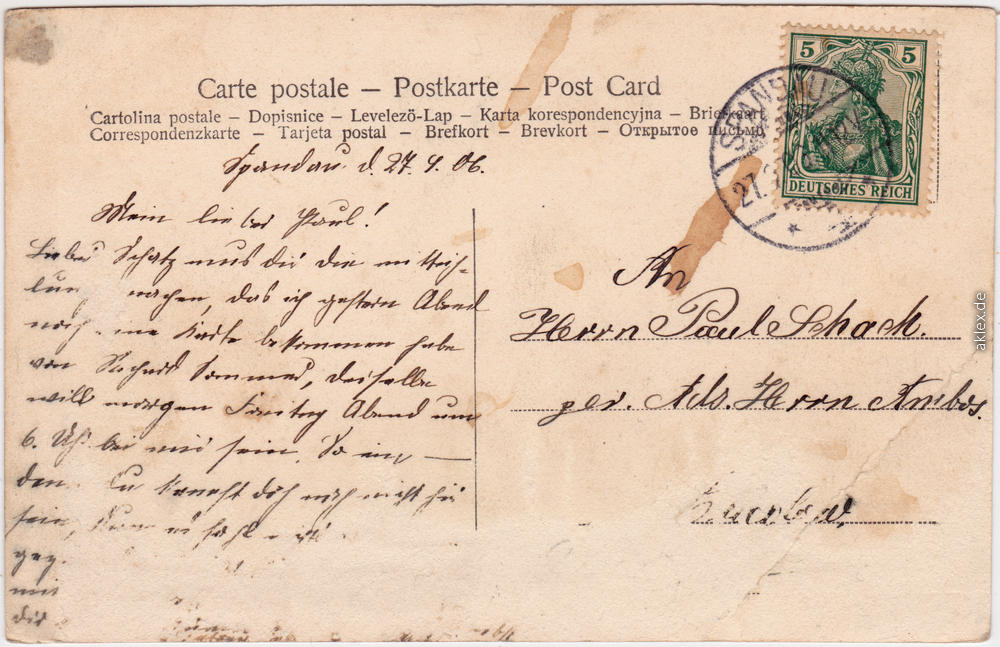 Carte postale – Postkarte – Post Card
Cartolina postale – Dopisnice – Levelező-Lap – Karta korespondencyjna – Briefkaart
Correspondenzkarte – Tarjeta postal – Brefkort – Brevkort – Открытое письмо
5 5
DEUTSCHES REICH
SPANDAU
27.
Spandau d. 27. 9. 06.
Mein lieber Paul!
Lieber Schatz mus dir die mitteih-
lung machen, das ich gestern Abend
noch Karte bekommen habe
von Sommer, derselbe
will morgen Freitag Abend um
6. Uhr bei mir sein. So ein
den. Du doch auch nicht hier
sein,
geg.
mit
dir
An
Herrn Paul Schach.
per. Ads. Herrn Ambos.
aklex.de